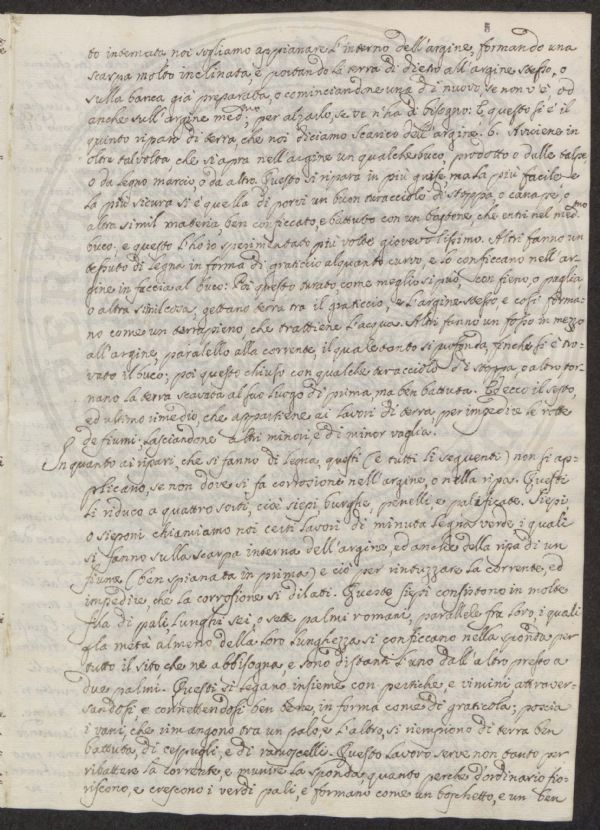 5
to internata noi sogliamo appianare l'interno dell'argine, formando una
scarpa molto inclinata, e portando la terra di dietro all'argine stesso, o
sulla banca già preparata, o cominciandone una di nuovo, se non v'è, od
anche sull'argine med.mo, per alzarlo, se ve n'ha di bisogno: E questo si è il
quinto riparo di terra, che noi diciamo scarico dell'argine. 6. Avviene in
oltre talvolta che si apra nell'argine un qualche buco, prodotto o dalle talpe,
o da legno marcio, o da altro. Questo si ripara in più guise, ma la più facile e
la più sicura si è quella di porvi un buon turacciolo di stoppa, o canape, o
altra simil materia ben conficcato, e battuto con un bastone, che entri nel med.mo
buco, e questo l'ho io sperimentato più volte giovevolissimo. Altri fanno un
tessuto di legna in forma di graticcio alquanto curvo, e lo conficcano nell'ar-
gine in faccia al buco: Poi questo turato come meglio si può, con fieno, o paglia
o altra simil cosa, gettano terra tra il graticcio, e l'argine stesso e così forma-
no come un terrapieno che trattiene l'acqua. Altri fanno un fosso in mezzo
all'argine, paralello alla corrente, il quale tanto si profonda, finchè si è tro-
vato il buco; poi questo chiuso con qualche turacciolo di stoppa, o altro tor-
nano la terra scavata al suo luogo di prima, ma ben battuta. Ed ecco il sesto,
ed ultimo rimedio, che appartiene ai lavori di terra, per impedire le rotte
de fiumi, lasciandone altri minori, e di minor vaglia.
In quanto ai ripari, che si fanno di legna, questi (e tutti li seguenti) non si ap-
plicano, se non dove si fa corrosione nell'argine, o nella ripa. Questi
li riduco a quattro sorti, cioè siepi, burghe, penelli e palificate. Siepi
o sieponi chiamiamo noi certi lavori di minuta legna verde, i quali
si fanno sulla scarpa interna dell'argine, ed anche della ripa di un
fiume (ben spianata in prima) e ciò per rintuzzare la corrente, ed
impedire, che la corrosione si dilati. Queste siepi consistono in molte
fila di pali, lunghi sei, o sette palmi romani, parallele fra loro, i quali
alla metà almeno della loro lunghezza si conficcano nella sponda per
tutto il sito che ne abbisogna, e sono distanti l'uno dall'altro presso a
due palmi. Questi si legano insieme con pertiche, e vimini attraver-
sandosi, e connettendosi ben bene, in forma come di graticola; poscia
i vani, che rimangono tra un palo, e l'altro, si riempiono di terra ben
battuta, di cespugli, e di ramoscelli. Questo lavoro serve non tanto per
ribattere la corrente, e munire la sponda, quanto perchè d'ordinario fio-
riscono, e crescono i verdi pali, e formano come un boschetto, e un ben